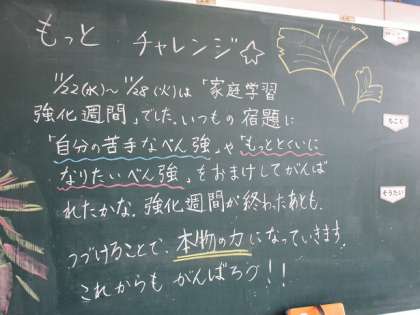 もっと チャレンジ☆
11/22(水)～11/28(火)は「家庭学習
強化週間」でした。いつもの宿題に
「自分の苦手なべん強」や「もっととくいに
なりたいべん強」をおまけしてがんば
れたかな。強化週間が終わったあとも、
つづけることで、本物の力になっていきます。
これからも がんばろう!!
ちこく
そうたい